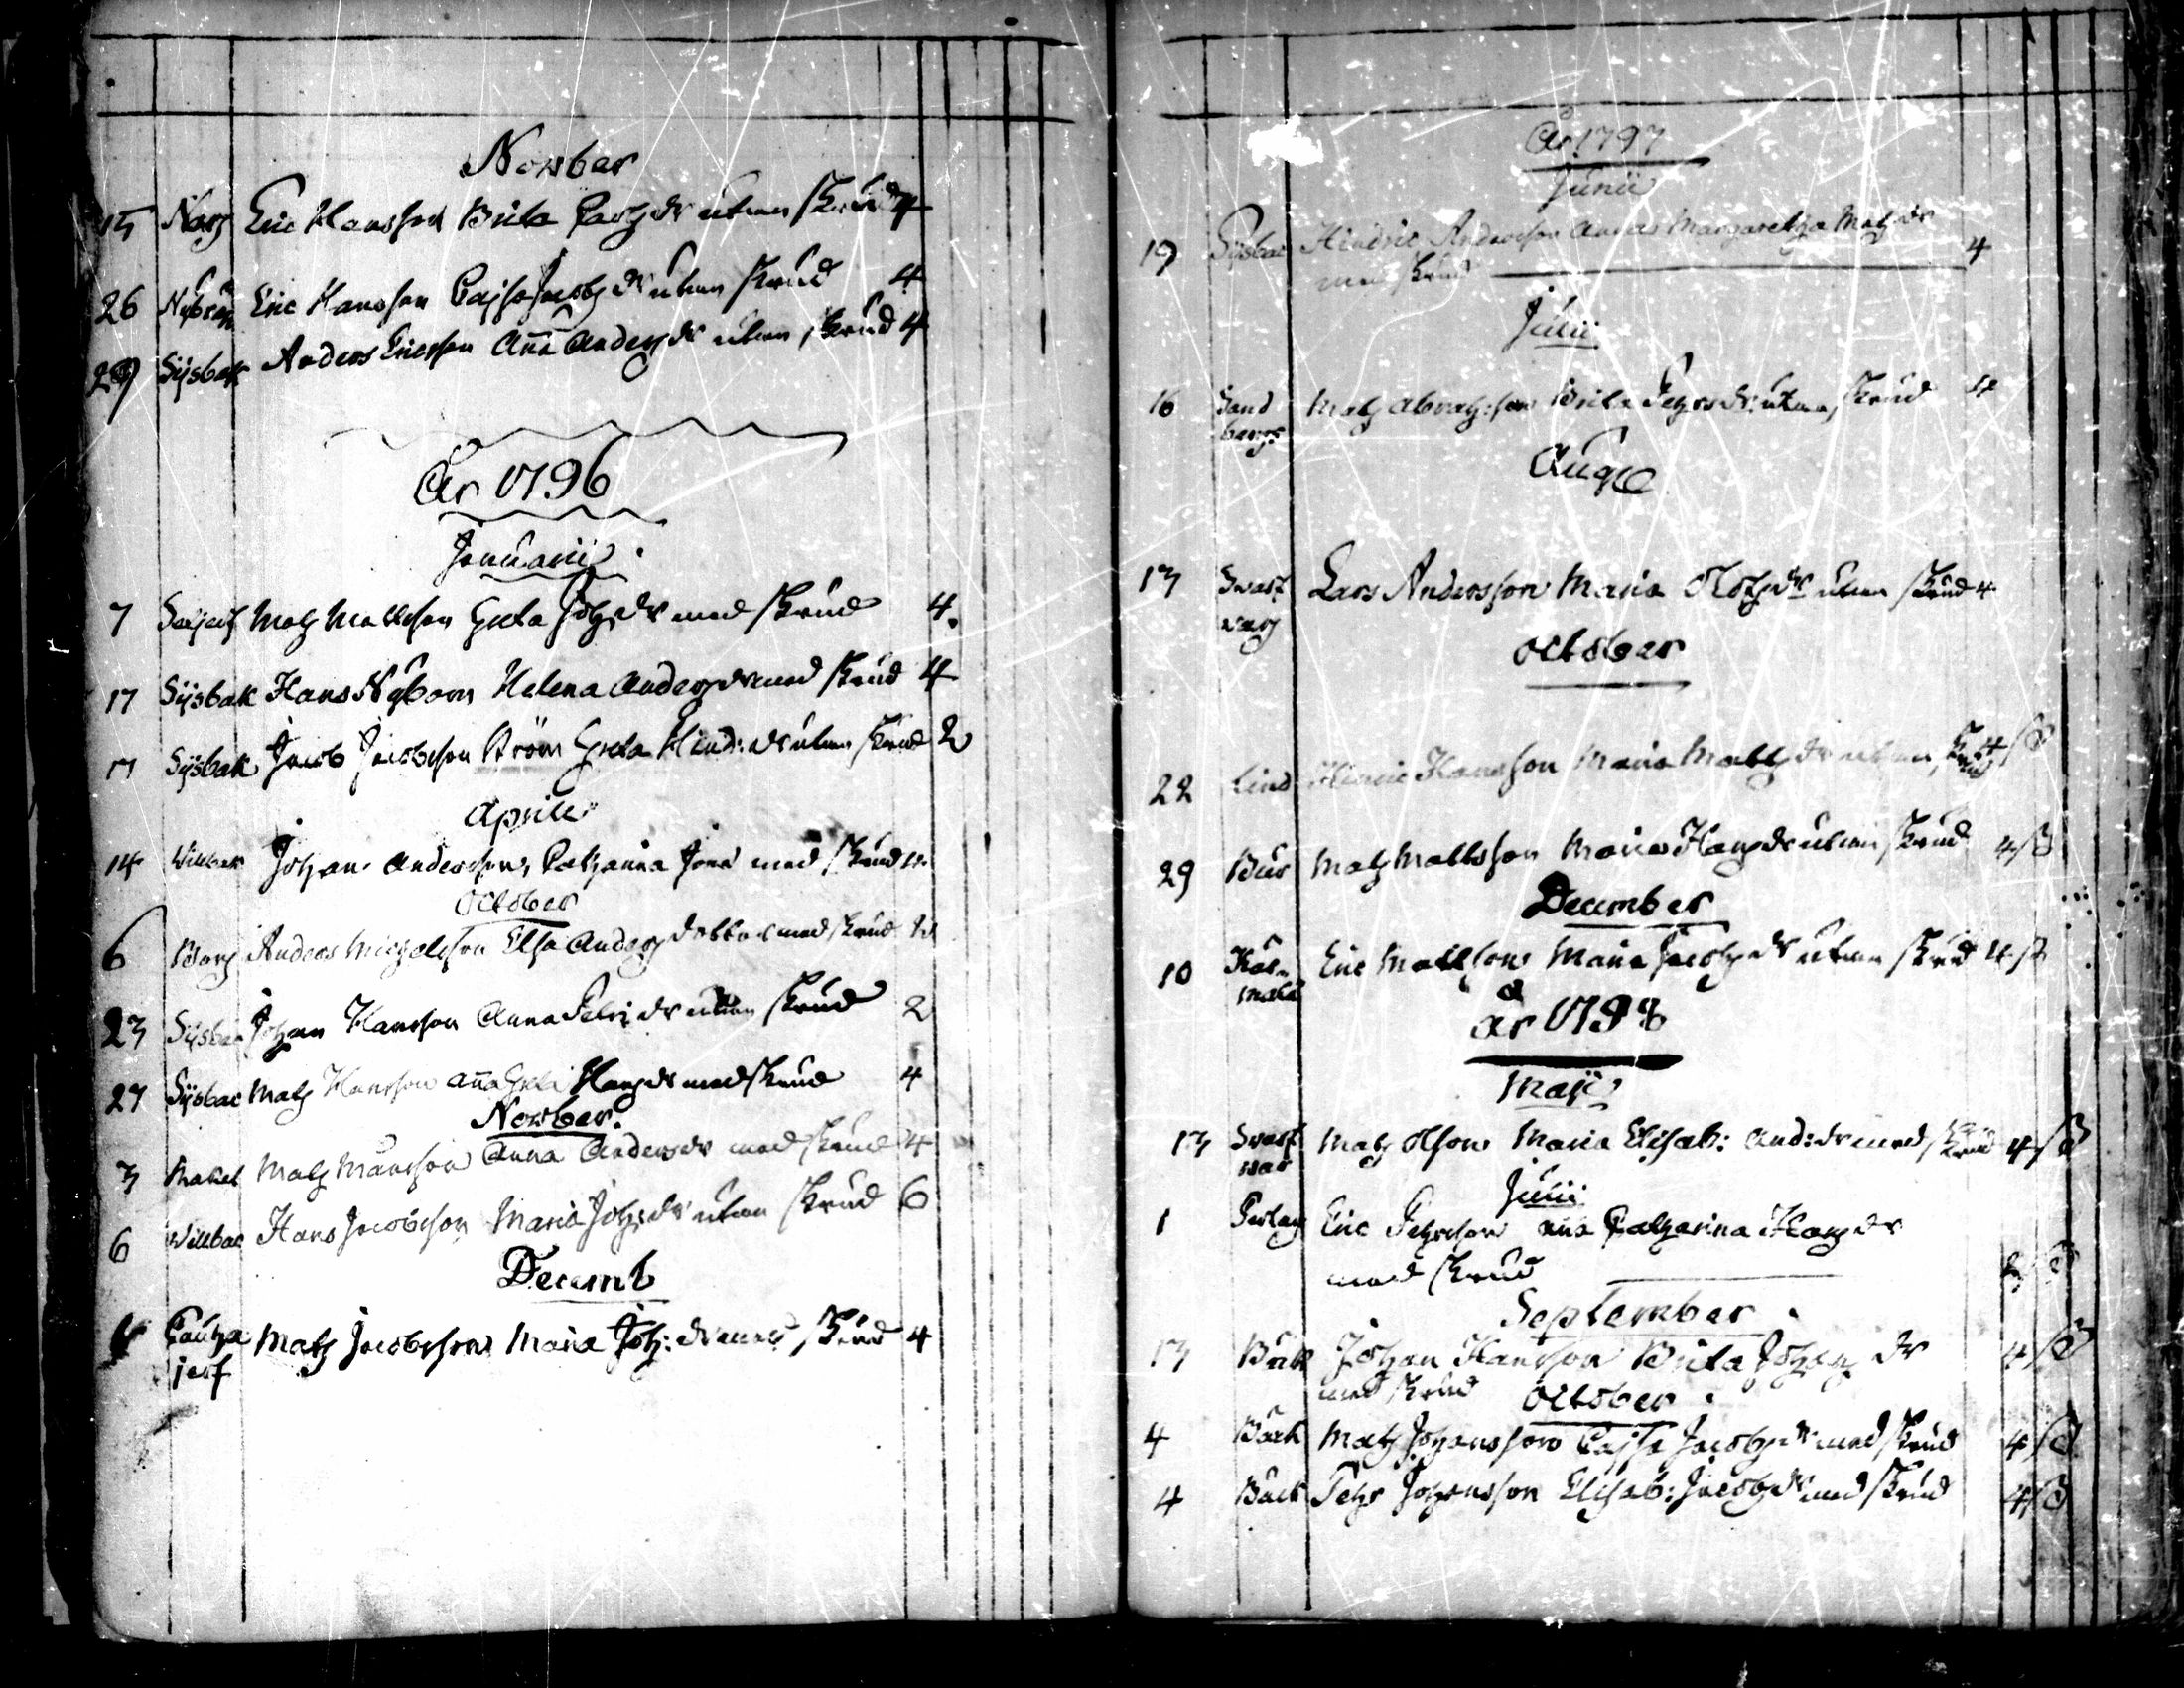 Novber
15 Narg Eric Hansson Brita Carlsdr utan skrud 4
26 Nybrän Eric Hansson Cajsa Jacobsdr utan skrud 4
29 Sysbak Anders Ericsson Anna Andersdr utan skrud 4
År 1796
Januarii
7 Matz Mattsson Greta Johsdr med skrud 4.
17 Sysbak Hans Nybom Helena Andersdr med skrud 4
17 Sysbak Jacob Jacobsson Ström Greta Hind:dr utan skrud 2
Aprill
14 Willbak Johan Andersson, Catharina Jons med skrud
October
6 Borg Anders Michelsson Elsa Anders dotter med skrud
23 Sysbac Johan Hansson Anna Petri dr utan skrud 2
27 Sysbac Matz Hansson Anna Greta Hansdr med skrud 4
Novber.
3 Makel Matz Månsson Anna Andersdr med skrud 4
6 Willbac Hans Jacobsson Maria Johsdr utan skrud 6
Decemb
Matz Jacobsson Maria Joh:dr med skrud 4
jerf
År 1797
Junii
19 Sysbac Hindric Andersson Margaretha Matsdr 4
med skrud
Julii
16 Sand Matz Abrah:son Brita Pehrsdr: utan skrud 4
bergs
Aug
13 Swarf Lars Andersson Maria Olofsdr utan skrud 4
warg
October
22 Lind Hinric Hansson Maria Matsdr utan skrud 4 ß
29 Bur Matz Mattsson Maria Hansdr utan skrud 4 ß
December
10 Eric Mattsson Maria Jacobsdr utan skrud 4 ß
år 1798
Maji
13 Swarf Matz Olson Maria Elisab: And:dr med skrud 4 ß
war
Julii
1 Eric Pehrsson Catharina Hansdr
med skrud ß
September
13 Back Johan Hansson Brita Johansdr 4 ß
med skrud October
4 Back Matz Johansson Cajsa Jacobsdr med skrud 4 ß
4 Back Pehr Johansson Elisab: Jacobsdr med skrud 4 ß